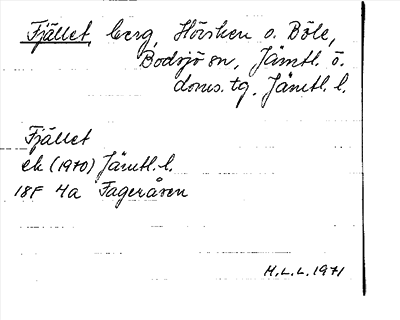 Fjället, berg, Hörsken o. Böle,
Bodsjö sn, Jämtl. ö.
doms. tg. Jämtl. l.
Fjället
ek (1970) Jämtl. l.
18F 4a Fageråsen
H.L.L. 1971